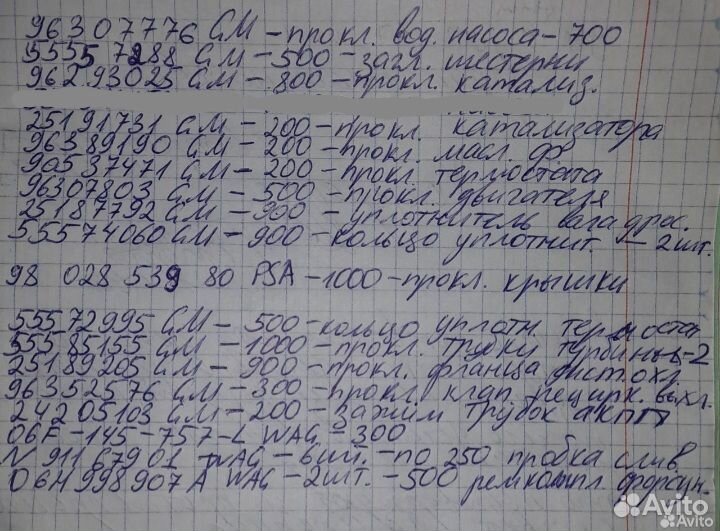 96307776 GM - прокл. вод. насоса - 700
55557288 GM - 500 - загл. шестерни
96293025 GM - 800 - прокл. катализ.
25191731 GM - 200 - прокл. катализатора
96389190 GM - 200 - прокл. масл. ф.
90537471 GM - 200 - прокл. термостата
96307803 GM - 500 - прокл. двигателя
25187792 GM - 300 - уплотнитель
55574060 GM - 900 - кольцо уплотнит. - 2шт.
98 028 539 80 PSA - 1000 - прокл. крышки
55572995 GM - 500 - кольцо уплотн. термостат
55585155 GM - 1000 - прокл. трубки турбины - 2
25189205 GM - 900 - прокл. фланца
96352576 GM - 300 - прокл. клап. рецирк. выхл.
24205103 GM - 200 - зажим трубок акпп
06F - 145 - 757 - L WAG - 300
N 91167901 WAG - 6шт. - по 250 пробка слив.
06H 998907A WAG - 2шт. - 500 ремкомпл. форсун.
Avito
Avito